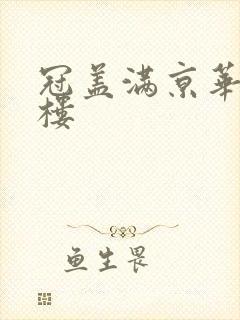 冠盖满京華
楼
鱼生畏